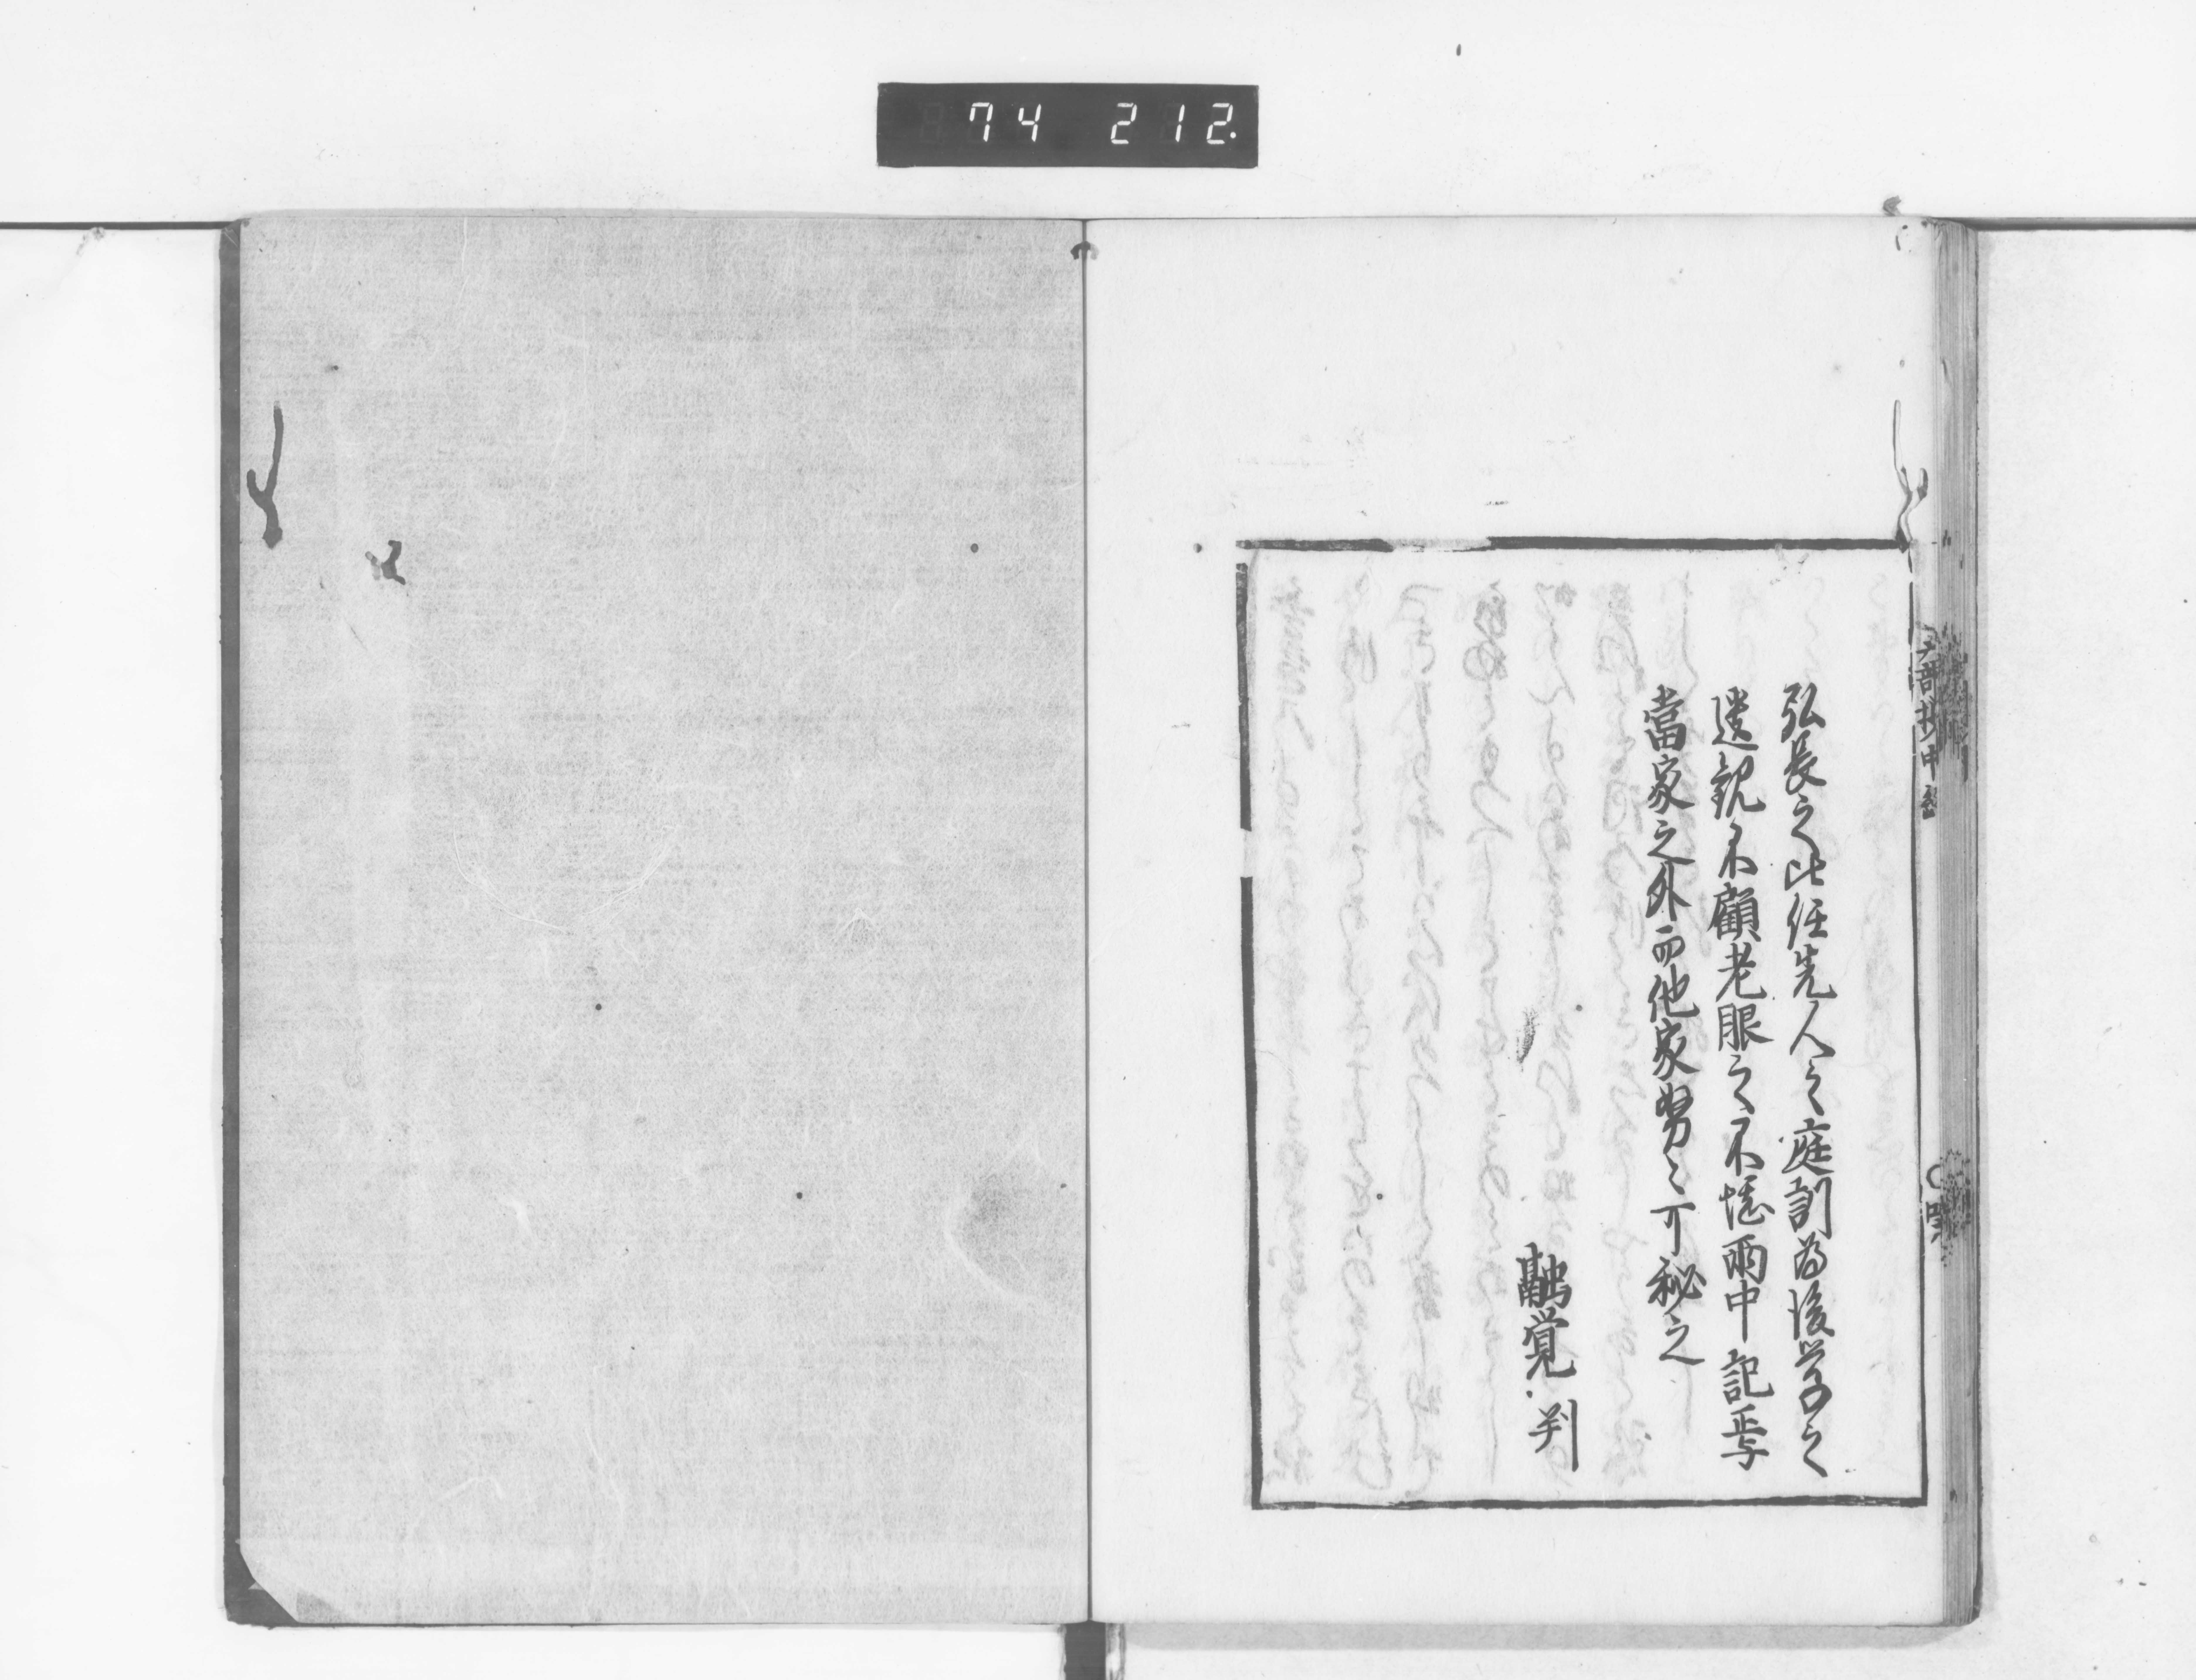 74 212.
弘長之比任先人之庭訓為後学之
遺親不顧老眼之不堪雨中記焉
當家之外而他家努々可秘之
融覚 判